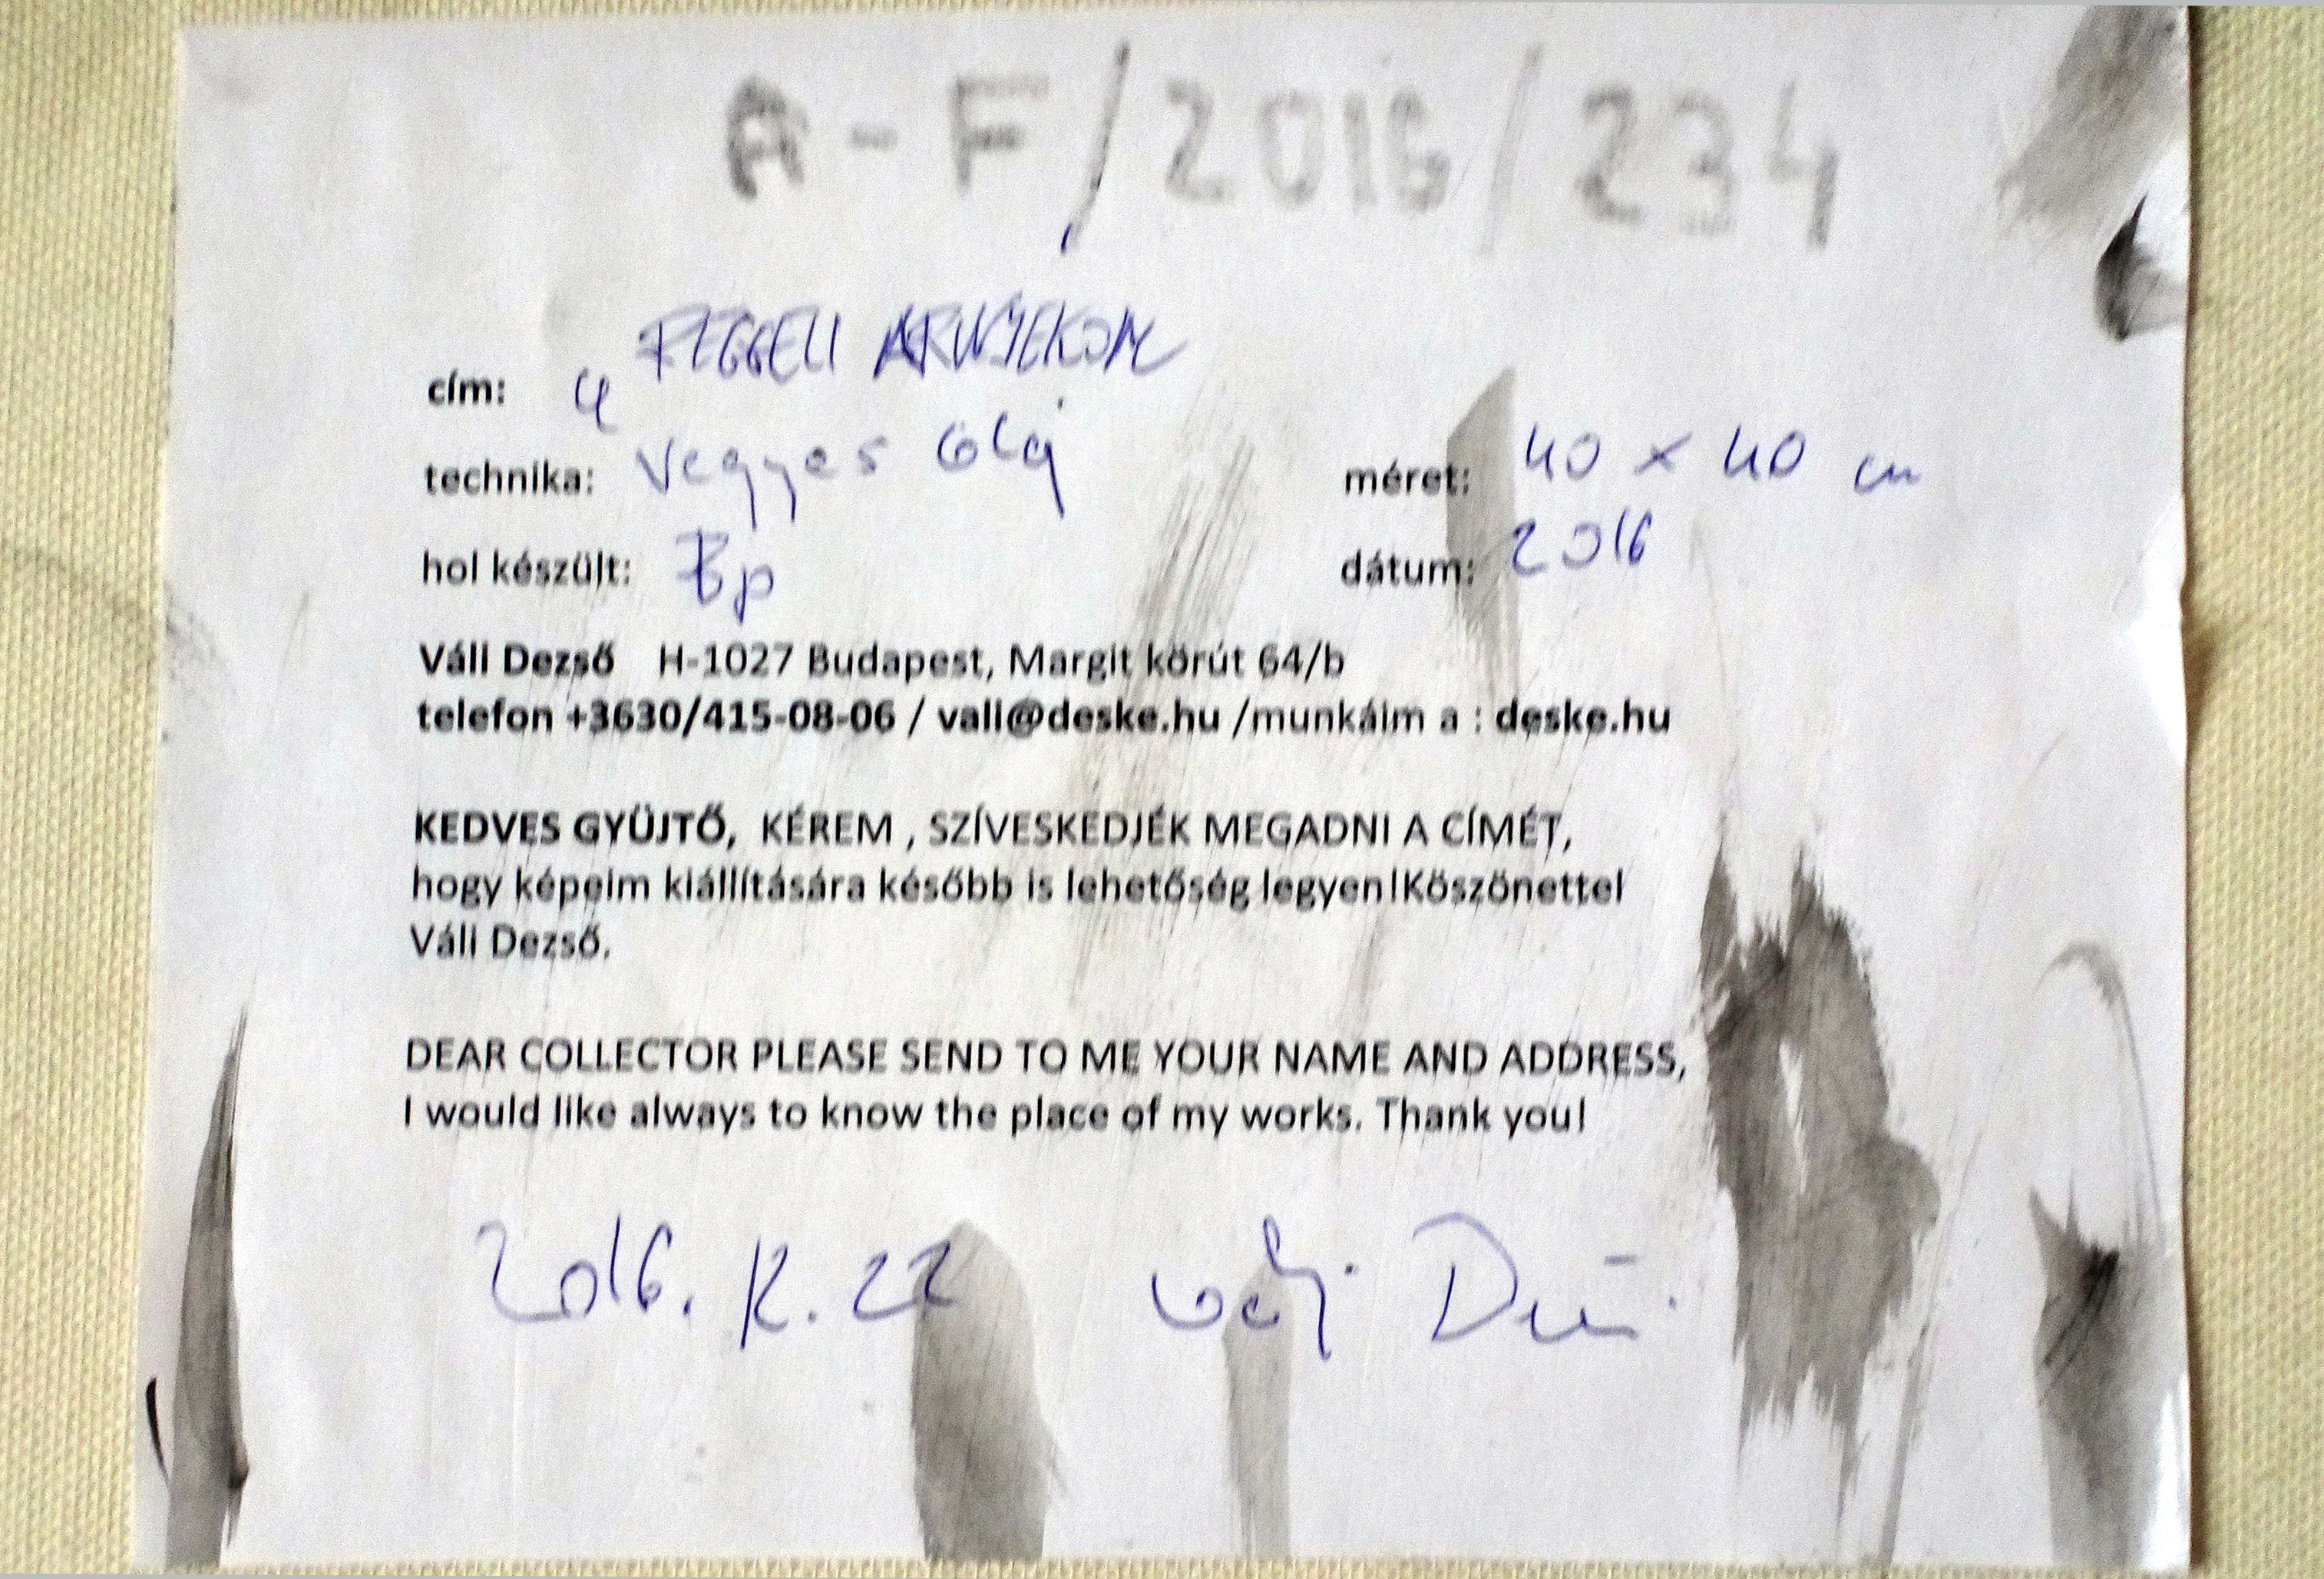 A-F/2016/234
cím: 4 REGGELI ÁRNYÉKOM
technika: vegyes olaj méret: 40 x 40 cm
hol készült: Bp dátum: 2016
Váli Dezső H-1027 Budapest, Margit körút 64/b
telefon +3630/415-08-06 / vali@deske.hu /munkáim a : deske.hu
KEDVES GYÜJTŐ, KÉREM , SZÍVESKEDJÉK MEGADNI A CÍMÉT,
hogy képeim kiállítására később is lehetőség legyen!Köszönettel
Váli Dezső.
DEAR COLLECTOR PLEASE SEND TO ME YOUR NAME AND ADDRESS,
I would like always to know the place of my works. Thank you!
2016. 22 Váli